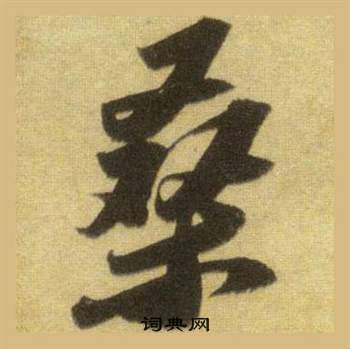 桑
词典网